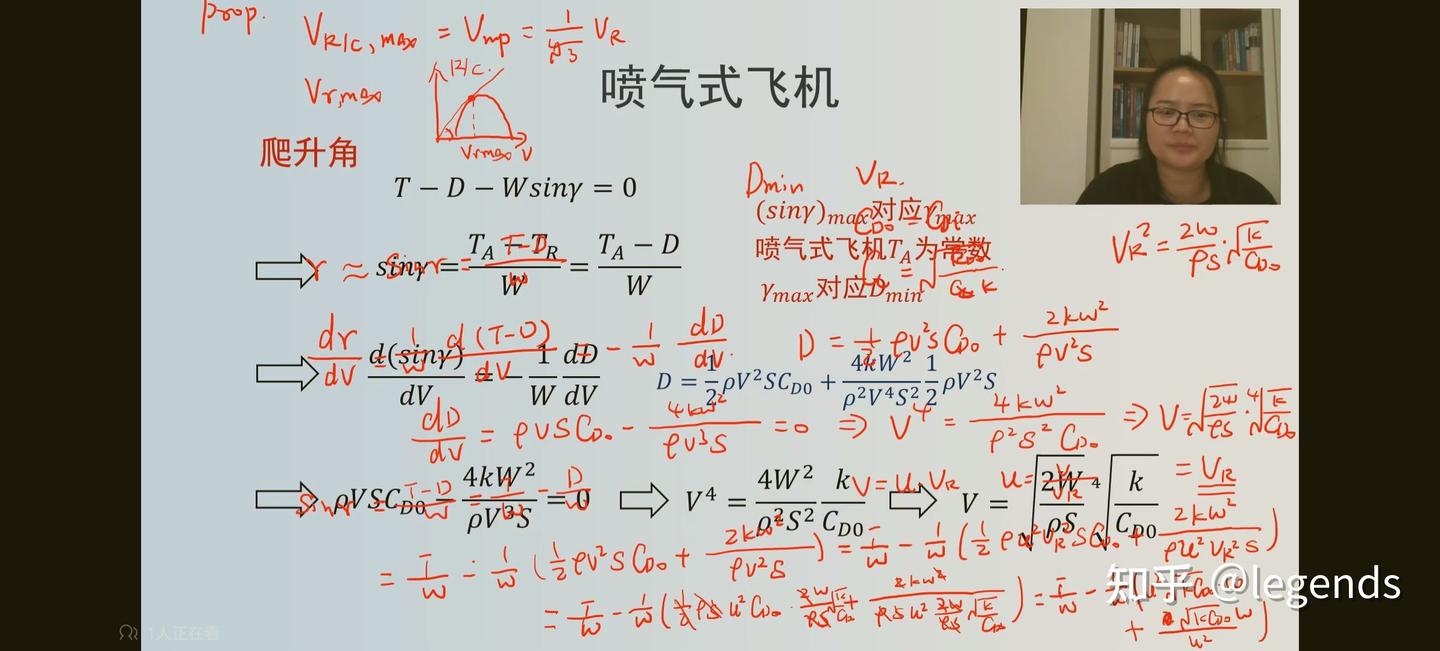 prop. V_{R/C, max} = V_{mp} = \frac{1}{\sqrt[4]{3}} V_R
V_{r, max}
R/C
V_{rmax} V
喷气式飞机
爬升角
T − D − Wsinγ = 0
D_{min} V_R.
(sinγ)_{max}对应γ_{max}
C_{D0} = C_{Di}
喷气式飞机T_A为常数
γ_{max}对应D_{min}
V_R^2 = \frac{2w}{ρS} · \sqrt{\frac{k}{C_{D0}}}
sinγ = \frac{T_A − T_R}{W} = \frac{T_A − D}{W}
r ≈ sinr = \frac{T-D}{w}
\frac{dr}{dV} = \frac{1}{w} \frac{d(T-D)}{dV} = - \frac{1}{w} \frac{dD}{dV}.
D = \frac{1}{2} ρv^2s C_{D0} + \frac{2kw^2}{ρv^2s}
\frac{d(sinγ)}{dV} = − \frac{1}{W} \frac{dD}{dV}
D = \frac{1}{2}ρV^2SC_{D0} + \frac{4kW^2}{ρ^2V^4S^2} \frac{1}{2}ρV^2S
\frac{dD}{dV} = ρVSC_{D0} - \frac{4kw^2}{ρV^3S} = 0 ⇒ V^4 = \frac{4kw^2}{ρ^2S^2C_{D0}} ⇒ V = \sqrt{\frac{2w}{ρS}} · \sqrt[4]{\frac{k}{C_{D0}}}
= V_R
ρVSC_{D0} − \frac{4kW^2}{ρV^3S} = 0
V^4 = \frac{4W^2}{ρ^2S^2} \frac{k}{C_{D0}}
V = \sqrt{\frac{2W}{ρS}} \sqrt[4]{\frac{k}{C_{D0}}}
V = u V_R u = \frac{V}{V_R}
sinr = \frac{T-D}{w} = \frac{T}{w} - \frac{D}{w}
= \frac{T}{w} - \frac{1}{w} (\frac{1}{2} ρv^2s C_{D0} + \frac{2kw^2}{ρv^2s}) = \frac{T}{w} - \frac{1}{w} (\frac{1}{2} ρu^2V_R^2SC_{D0} + \frac{2kw^2}{ρu^2V_R^2S})
= \frac{T}{w} - \frac{1}{w} (\frac{1}{2} ρs u^2 C_{D0} · \frac{2w}{ρs} \sqrt{\frac{k}{C_{D0}}} + \frac{2kw^2}{ρs u^2 \frac{2w}{ρs} \sqrt{\frac{k}{C_{D0}}}}) = \frac{T}{w} -
+ \frac{\sqrt{kC_{D0}} w}{u^2})
知乎 @legends
1人正在看